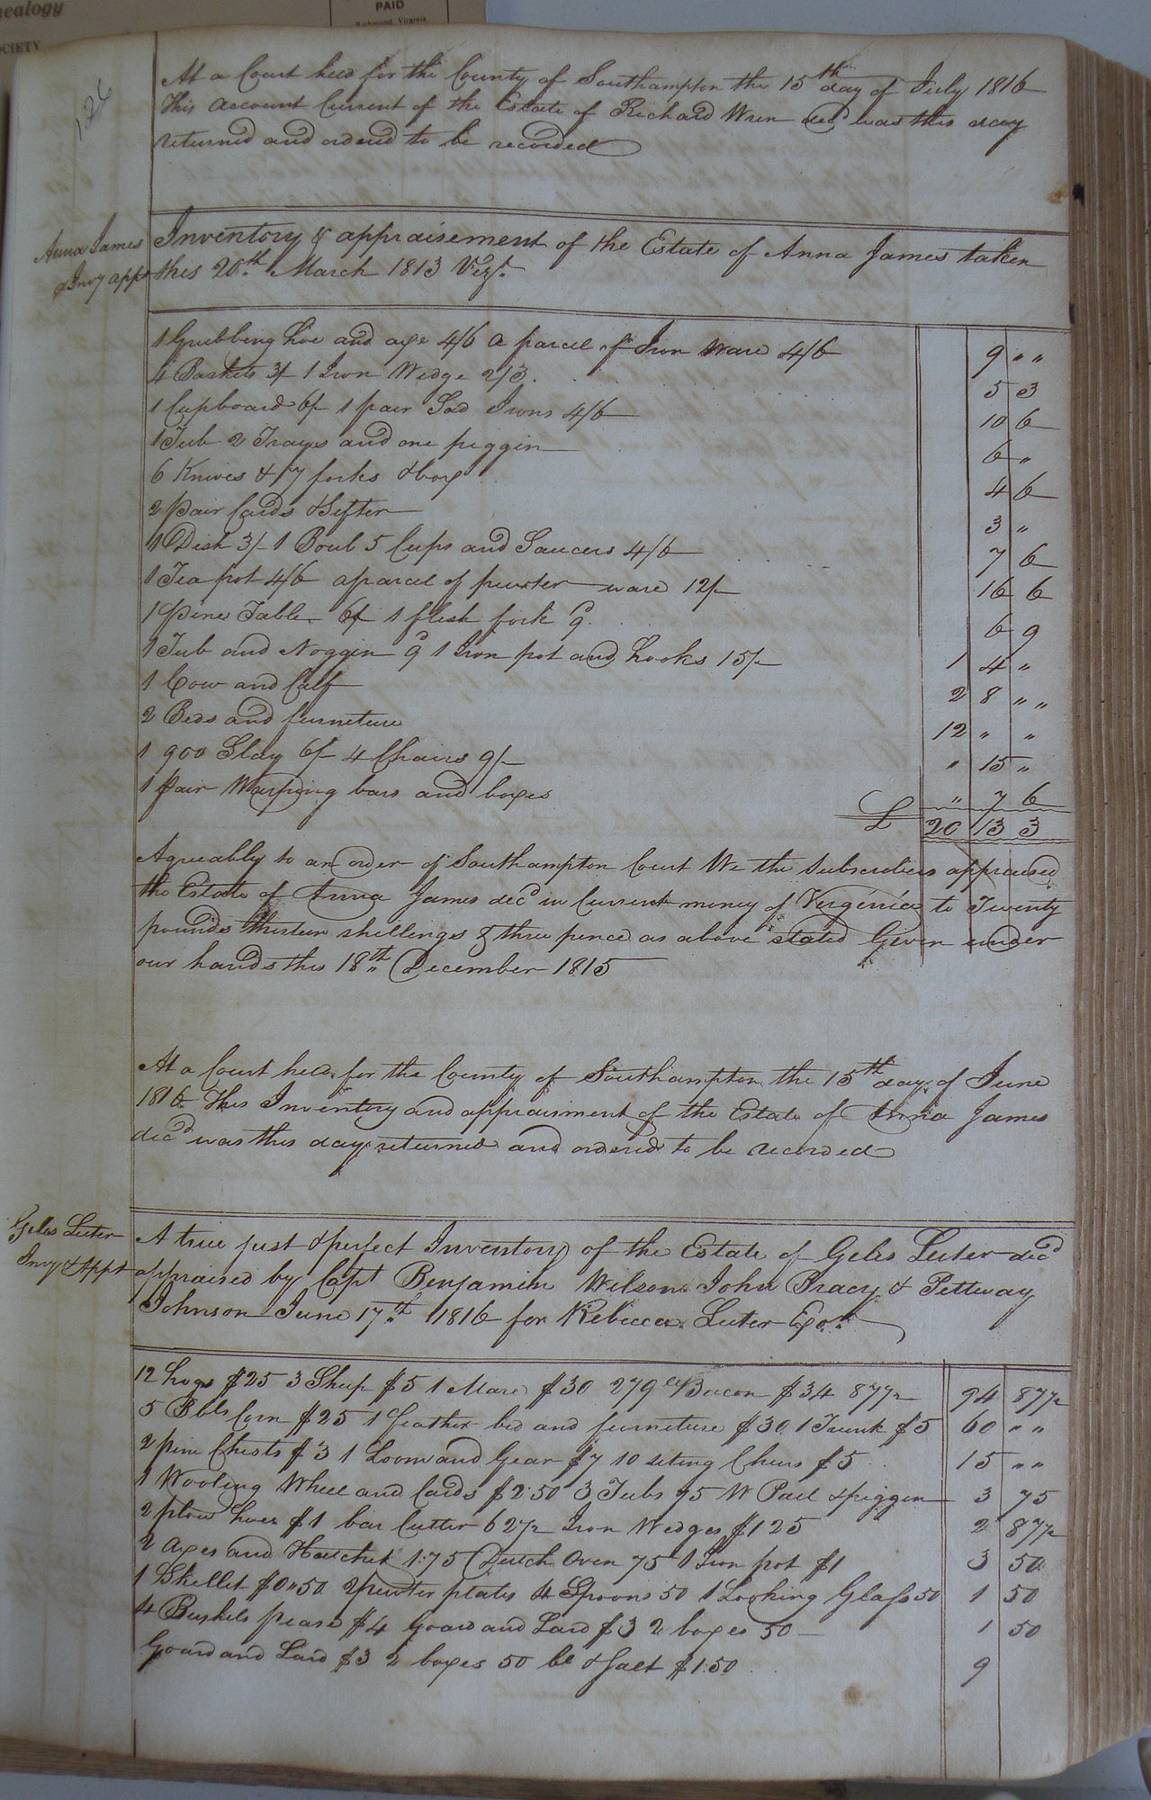 nealogy
OCIETY
PAID
Richmond, Virginia
126
At a Court held for the County of Southampton the 15th day of July 1816
This account Current of the Estate of Richard Wren decd was this day
returned and ordered to be recorded
Anna James
Invy appt
Inventory & appraisement of the Estate of Anna James taken
this 20th March 1813 Vizt
1 Grubbing hoe and axe 4/6 a parcel of Iron Ware 4/6 9 " "
4 Baskets 3/ 1 Iron Wedge 2/3. 5 3
1 Cupboard 6/ 1 pair Sad Irons 4/6 10 6
1 Tub 2 Trays and one piggin 6 "
6 Knives & 7 forks & box 4 6
2 pair Cards & Sifter 3 "
1 Dish 3/- 1 Boul 5 Cups and Saucers 4/6 7 6
1 Tea pot 4/6 a parcel of pewter ware 12/- 16 6
1 pine Table 6/ 1 flesh fork 9d 6 9
1 Tub and Noggin 9d 1 Iron pot and hooks 15/- 1 4 "
1 Cow and Calf 2 8 " "
2 Beds and furneture 12 " "
1 900 Slay 6/- 4 Chairs 9/- " 15 "
1 pair Warping bars and boxes " 7 6
£ 20 13 3
Agreeably to an order of Southampton Court We the Subscribers appraised
the Estate of Anna James decd in Current money of Verginia to Twenty
pounds thirteen shellings & three pence as above stated Given under
our hands this 18th December 1815
At a Court held for the County of Southampton the 15th day of June
1816 This Inventory and appraisment of the Estate of Anna James
decd was this day returned and ordered to be recorded
Giles Luter
Invy & Appt
A true just & perfect Inventory of the Estate of Giles Luter decd
appraised by Capt Benjamin Wilson John Bracy & Pettway
Johnson June 17th 1816 for Rebecca Luter Exor
12 hogs $25 3 Sheep $5 1 Mare $30 279 lb Bacon $34 87½ 94 87½
5 Bbls Corn $25 1 feather bed and furneture $30 1 Trunk $5 60 " "
2 pine Chests $3 1 Loom and Gear $7 10 seting Chears $5 15 " "
1 Wooling Wheel and Cards $2.50 3 Tubs 75 W Pail & piggin 3 75
2 plow hoes $1 bar Cutter 62½ Iron Wedges $1 25 2 87½
2 axes and Hatchet 1.75 Dutch Oven 75 1 Iron pot $1 3 50
1 Skellet $0.50 2 pewter plates 4 Spoons 50 1 Looking Glass 50 1 50
4 Bushels pease $4 Goard and Lard $3 2 boxes 50 1 50
Gourd and Lard $3 2 boxes 50 bl & salt $1.50 9